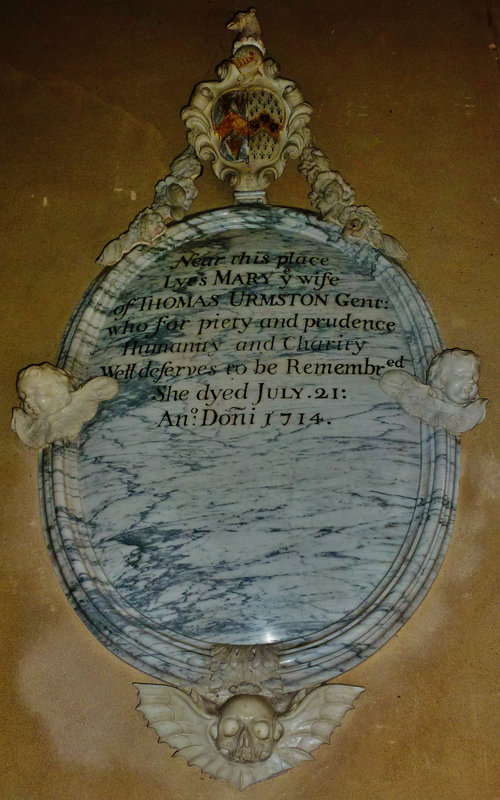 Near this place
Lyes MARY yᵉ wife
of THOMAS URMSTON Gent:
who for piety and prudence
Humanity and Charity
Well deserves to be Remembrᵉᵈ
She dyed JULY.21:
Anº: Dom̃i 1714.